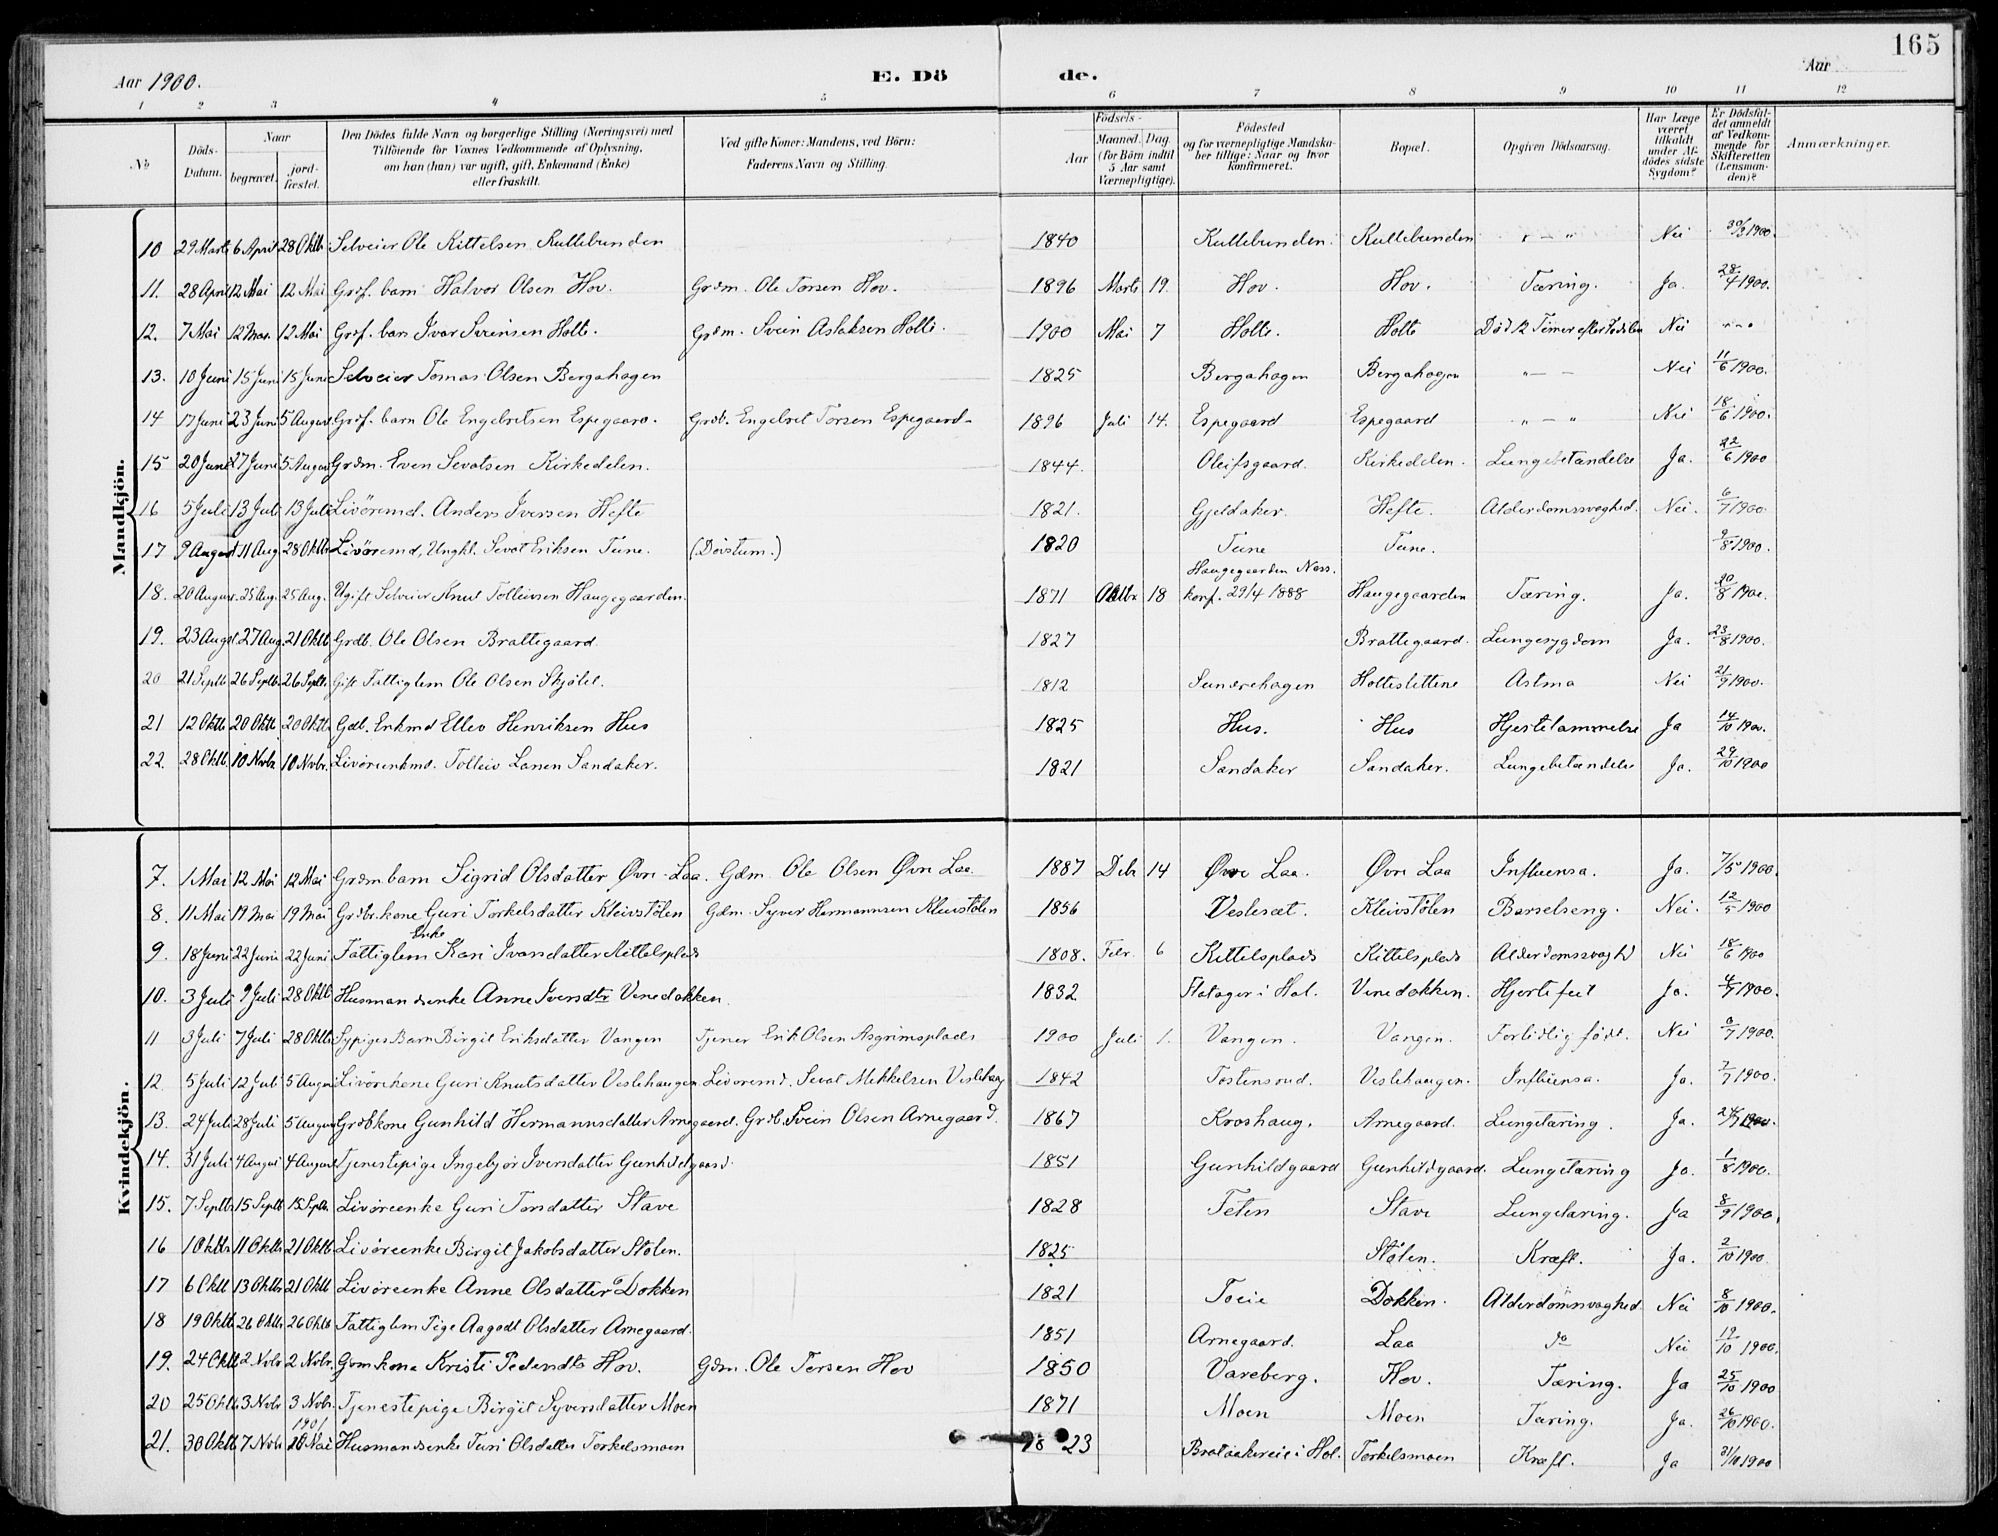 165
Aar 1900. E. Dö de. Aar
1 2 3 4 5 6 7 8 9 10 11 12
No
Döds-Datum.
Naar begravet. jordfæstet.
Den Dödes fulde Navn og borgerlige Stilling (Næringsvei) med Tilföiende for Voxnes Vedkommende af Oplysning, om han (hun) var ugift, gift, Enkemand (Enke) eller fraskilt.
Ved gifte Koner: Mandens, ved Börn: Faderens Navn og Stilling.
Födsels- Aar Maaned. Dag. (for Börn indtil 5 Aar samt Værnepligtige).
Födested og for værnepligtige Mandskaber tillige: Naar og hvor konfirmeret.
Bopæl.
Opgiven Dödsaarsag.
Har Læge været tilkaldt under Afdödes sidste Sygdom?
Er Dödsfaldet anmeldt af Vedkommende for Skifteretten (Lensmanden)?
Anmærkninger.
Mandkjön.
10 29 Marts 6 April 28 Oktb Selveier Ole Kittelsen Kullebunden 1840 Kullebunden. Kullebunden " — " Nei 30/3 1900.
11. 28 April 12 Mai 12 Mai Grdf. barn Halvor Olsen Hov. Grdm. Ole Torsen Hov. 1896 Marts 19. Hov. Hov. Tæring. Ja. 28/4 1900.
12. 7 Mai 12 Mai 12 Mai Grdf. barn Ivar Sveinsen Holte. Grdm. Svein Aslaksen Holte. 1900 Mai 7 Holte. Holte Död 12 Timer efter Födslen Nei " — "
13. 10 Juni 15 Juni 15 Juni Selveier Tomas Olsen Bergahagen 1825 Bergahagen Bergahagen " — — Nei 11/6 1900.
14 17 Juni 23 Juni 5 August Grdf. barn Ole Engebretsen Espegaard. Grdb. Engebret Torsen Espegaard 1896 Juli 14. Espegaard Espegaard " — " Nei 18/6 1900.
15 20 Juni 27 Juni 5 August Grdm. Even Sevatsen Kirkedelen. 1844. Oleifsgaard. Kirkedelen. Lungebetændelse Ja. 22/6 1900
16 5 Juli 13 Juli 13 Juli Livöremd. Anders Iversen Hefte 1821. Gjeldaker. Hefte. Alderdomssvaghed. Nei. 6/7 1900.
17 9 August 11 Aug 28 Oktb Livöremd, Ungkl. Sevat Eriksen Tune. (Dövstum.) 1820 Tune Tune. 9/8 1900.
18. 20 August 25 Aug. 25 Aug. Ugift Selveier Knut Tolleivsen Haugegaarden. 1871 Oktbr 18 Haugegaarden Næss. konf. 29/4 1888 Haugegaarden Tæring. Ja. 20/8 1900.
19. 23 Augst. 27 Aug. 21 Oktb Grdb. Ole Olsen Brattegaard. 1827 Brattegaard. Lungesygdom Ja. 23/8 1900.
20 21 Septb 26 Septb. 26 Septb. Gift Fattiglem Ole Olsen Skjölil. 1812 Sundrehagen Holteslettene Astma Nei 21/9 1900.
21 12 Oktb 20 Oktb 20 Oktb. Gdb. Enkmd Ellev Henriksen Hus 1825 Hus. Hus Hjertelammelse Ja 14/10 1900.
22. 28 Oktb. 10 Nvbr 10 Nvbr. Livöreenkmd. Tolleiv Larsen Sandaker. 1821 Sandaker Sandaker. Lungebetændelse Ja. 29/10 1900
Kvindekjön.
7. 1 Mai 12 Mai 12 Mai Grdm barn Sigrid Olsdatter Øvre-Laa. Gdm. Ole Olsen Øvre Laa 1887 Debr 14 Øvre Laa. Øvre Laa Influensa. Ja. 7/5 1900.
8. 11 Mai 19 Mai 19 Mai Grdbr. kone Guri Torkelsdatter Kleivstölen Gdm. Syver Hermannsen Kleivstölen 1856 Veslesæt. Kleivstölen Barselseng. Nei. 12/5 1900
9. 18 Juni 22 Juni 22 Juni Fattiglem Enke Kari Ivarsdatter Kittelsplads 1808. Febr. 6 Kittelsplads Kittelsplads Alderdomssvaghd Nei 18/6 1900
10. 3 Juli 9 Juli 28 Oktb Husmandsenke Anne Iversdtr Vinedokken. 1832 Flatager i Hol. Vinedokken. Hjertefeil Ja. 4/7 1900.
11 3 Juli 7 Juli 28 Oktb Sypiges Barn Birgit Eriksdatter Vangen Tjener Erik Olsen Asgrimsplads 1900 Juli 1. Vangen. Vangen. Fortidlig född. Nei /7 1900.
12. 5 Juli 12 Juli 5 August Livörekone Guri Knutsdatter Veslehaugen Livöremd. Sevat Mekkelsen Veslehaug 1842 Tostensrud. Veslehaugen. Influensa. Ja. 7/7 1900.
13. 24 Juli 28 Juli 5 August Grdbkone Gunhild Hermannsdatter Arnegaard. Grdb. Svein Olsen Arnegaard. 1867 Kroshaug. Arnegaard. Lungetæring. Ja. 24/7 1900.
14. 31 Juli 4 August 4 August Tjenestepige Ingebjör Iversdatter Gunhildgaard. 1851 Gunhildgaard Gunhildgaard. Lungetæring Ja. 1/8 1900.
15. 7 Septb. 15 Septb 15 Septb. Livöreenke Guri Torsdatter Stave 1828 Teten Stave Lungetæring. Ja 8/9 1900.
16 1 Oktb 11 Oktb 21 Oktb Livöreenke Birgit Jakobsdatter Stölen. 1825 Stölen. Kræft. Ja. 2/10 1900.
17 6 Oktb 13 Oktb 21 Oktb Livöreenke Anne Olsdatter Dokken 1821 Toeie Dokken. Alderdomsvaghed Nei 8/10 1900.
18 19 Oktb 26 Oktb 26 Oktb Fattiglem Pige Aagodt Olsdatter Arnegaard. 1851 Arnegaard. Laa do Nei 19/10 1900.
19. 24 Oktb 2 Nvbr 2 Nvbr. Gdm kone Kristi Pedersdtr Hov. Gdm. Ole Torsen Hov 1850 Vareberg. Hov. Tæring. Ja 25/10 1900
20 25 Oktb 3 Nvbr 3 Nvbr. Tjenestepige Birgit Syversdatter Moen 1871 Moen Moen Tæring. Ja. 26/10 1900.
21. 30 Oktb 7 Nvbr 1901 Mai Husmandsenke Turi Olsdatter Torkelsmoen 1823 Brataakereie i Hol. Torkelsmoen Kræft. Ja 31/10 1900